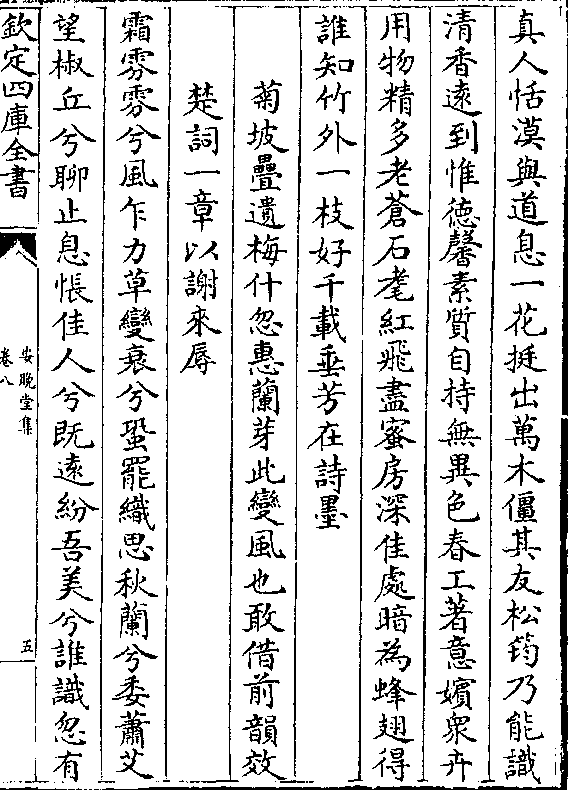 真人恬漠與道息一花挺出萬木僵其友松筠乃能識
清香遠到惟德馨素質自持無異色春工著意嬪衆卉
用物精多老蒼石耄紅飛盡蜜房深佳處暗為蜂翅得
誰知竹外一枝好千載垂芳在詩墨
菊坡疊遺梅什忽惠蘭芽此變風也敢借前韻效
楚詞一章以謝來辱
霜雰雰兮風乍力草變衰兮蛩罷織思秋蘭兮委蕭艾
望椒丘兮聊止息悵佳人兮既遠紛吾美兮誰識忽有
欽定四庫全書
安晚堂集
卷八
五